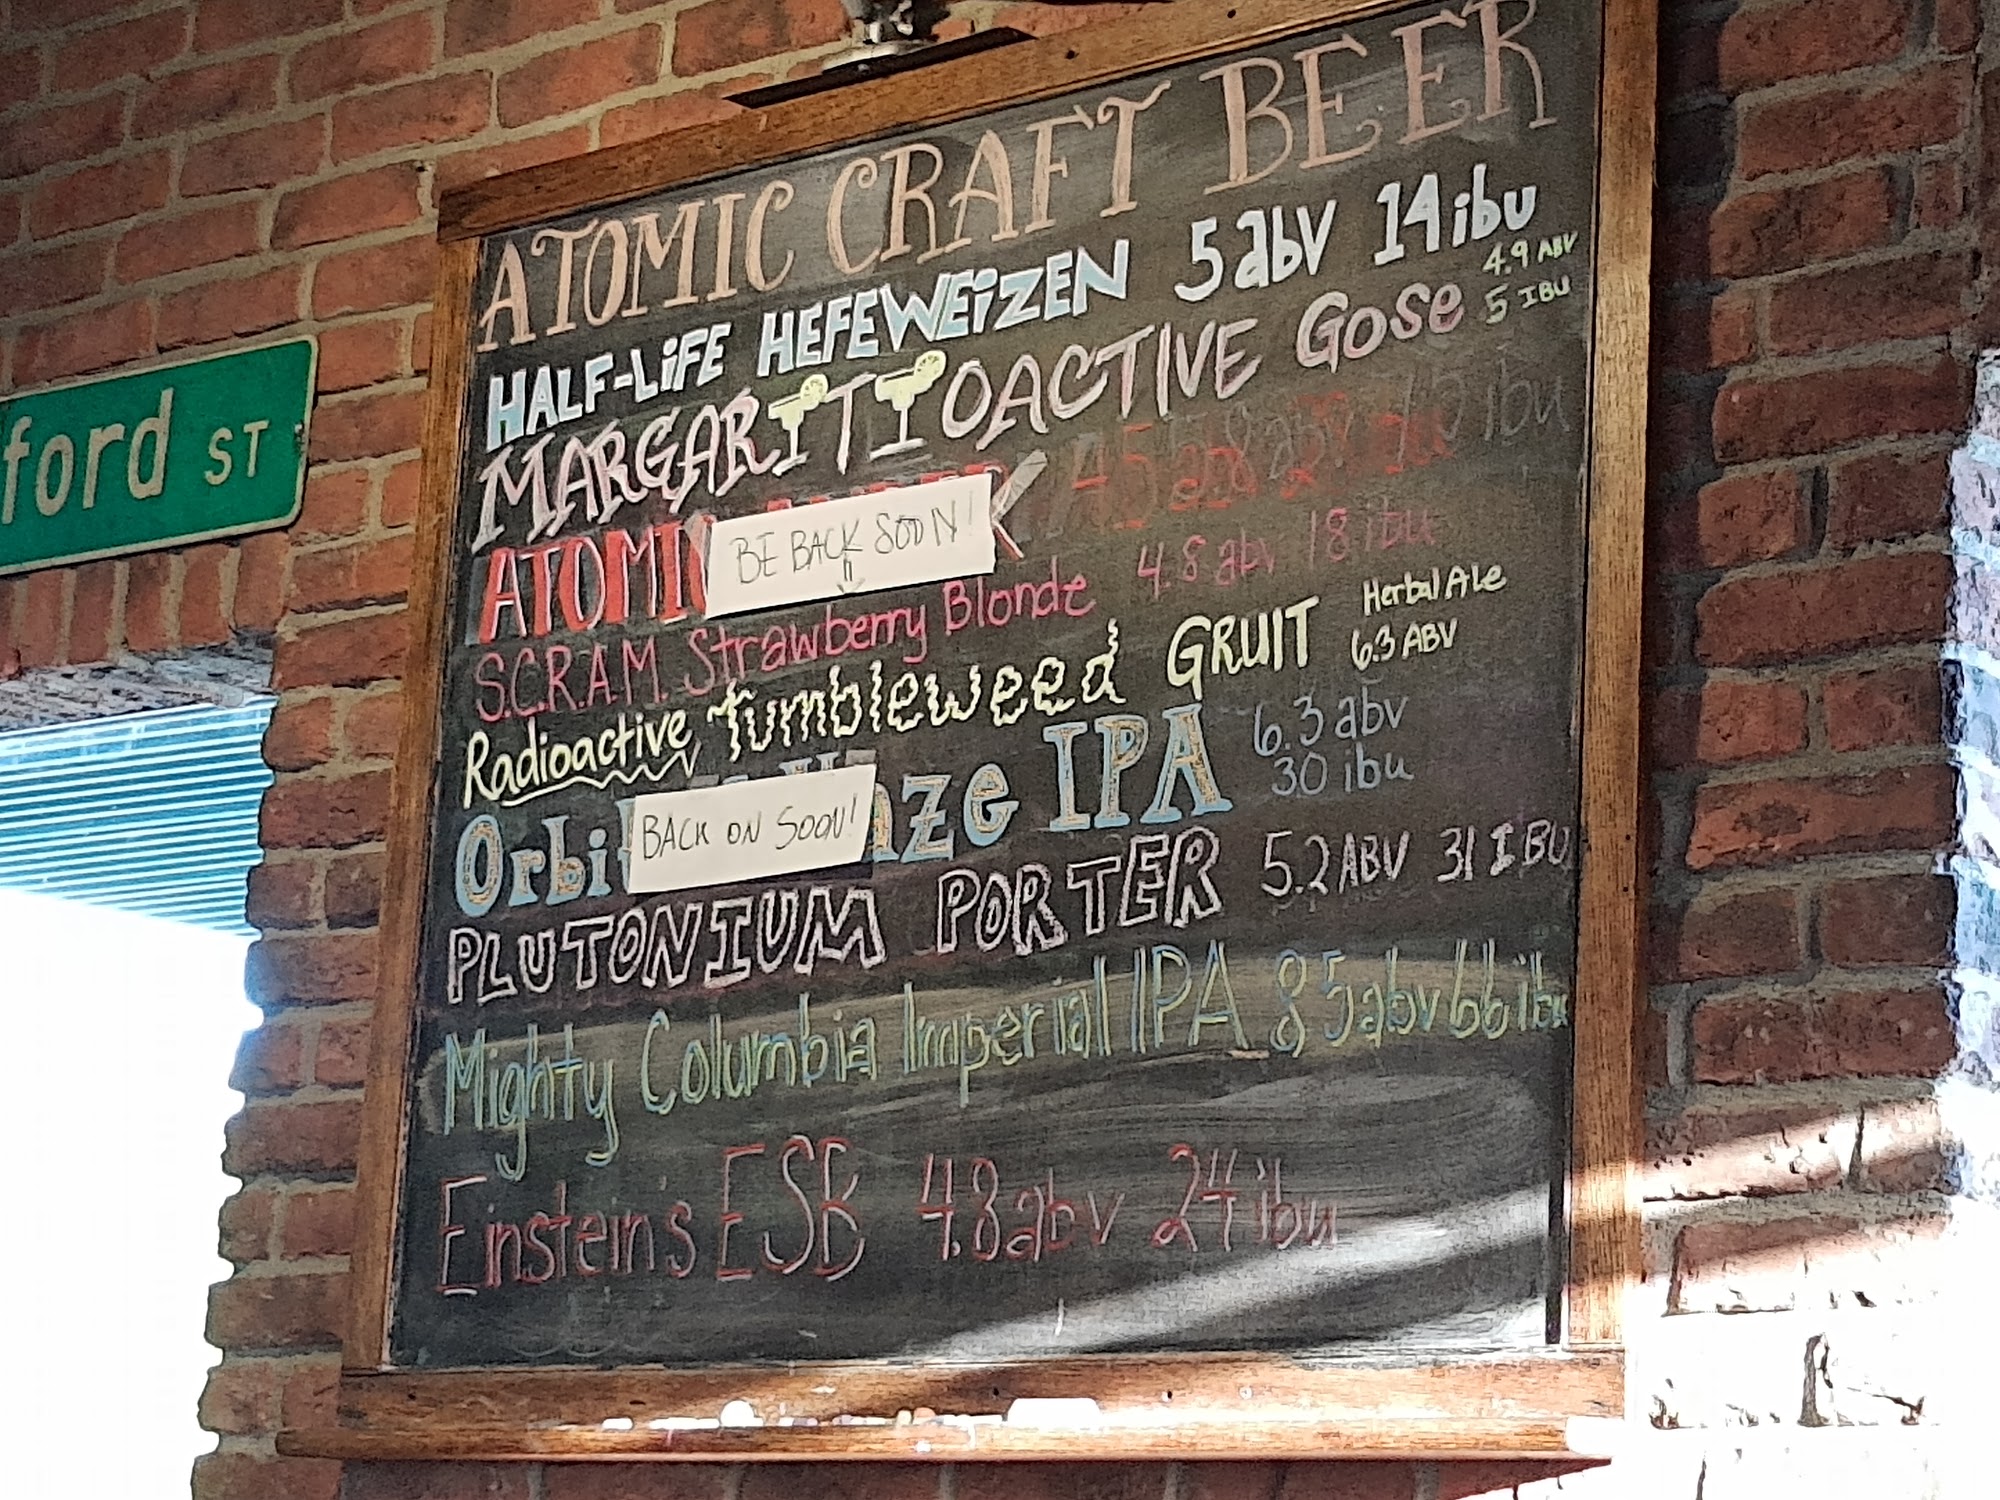 ford ST
ATOMIC CRAFT BEER
HALF-LIFE HEFEWEIZEN 5abv 14ibu
MARGARITIOACTIVE Gose 4.9 ABV
5 IBU
ATOMIC
BE BACK SOON!
S.C.R.A.M. Strawberry Blonde 4.8 abv 18 ibu
Radioactive Tumbleweed GRUIT Herbal Ale
6.3 ABV
Orbi aze IPA 6.3 abv
30 ibu
BACK ON SOON!
PLUTONIUM PORTER 5.2 ABV 31 IBU
Mighty Columbia Imperial IPA 8.5abv 66ibu
Einstein's ESB 4.8abv 24ibu